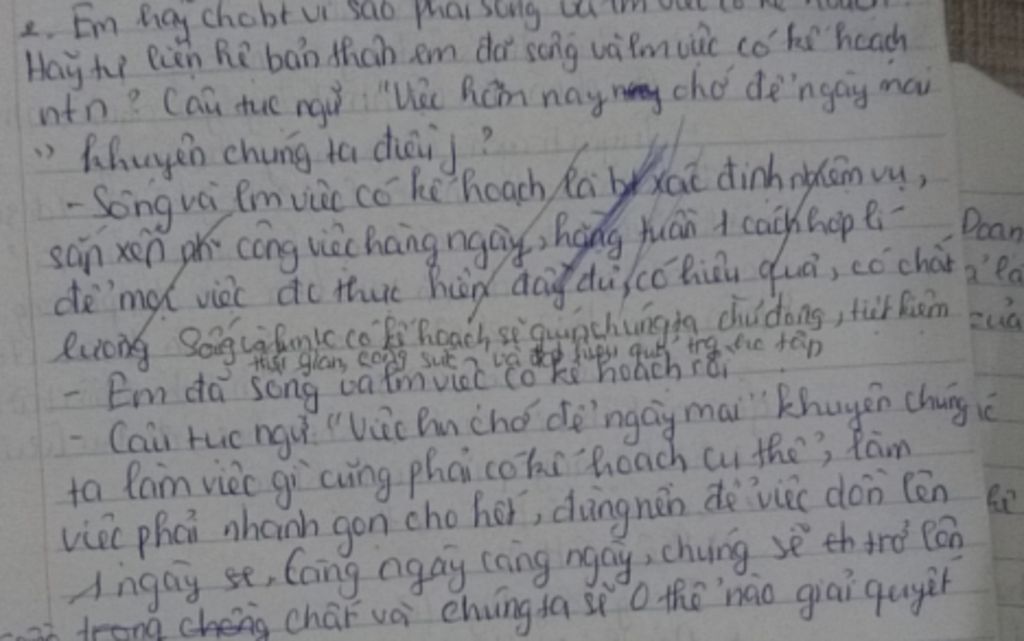 2. Em hãy cho bt vì sao phải sống và lm việc có kế hoạch
Hãy tự liên hệ bản thân em đã sống và lm việc có kế hoạch
ntn? Câu tục ngữ "Việc hôm nay chớ để ngày mai
" khuyên chúng ta điều j?
- Sống và lm việc có kế hoạch là xác định nhiệm vụ,
sắp xếp công việc hàng ngày, hàng tuần 1 cách hợp lí
để mọi việc đc thực hiện đầy đủ, có hiệu quả, có chất
lượng Sống và lm việc có kế hoạch sẽ giúp chúng ta chủ động, tiết kiệm
thời gian, công sức và hiệu quả trg học tập
- Em đã sống và lm việc có kế hoạch rồi
- Câu tục ngữ "Việc hn chớ để ngày mai" khuyên chúng
ta làm việc gì cũng phải có kế hoạch cụ thể, làm
việc phải nhanh gọn cho hết, đừng nên để việc dồn lên
1 ngày sẽ, càng ngày càng ngày, chúng sẽ trở lên
chất và chúng ta sẽ 0 thể nào giải quyết
Doan
là
của